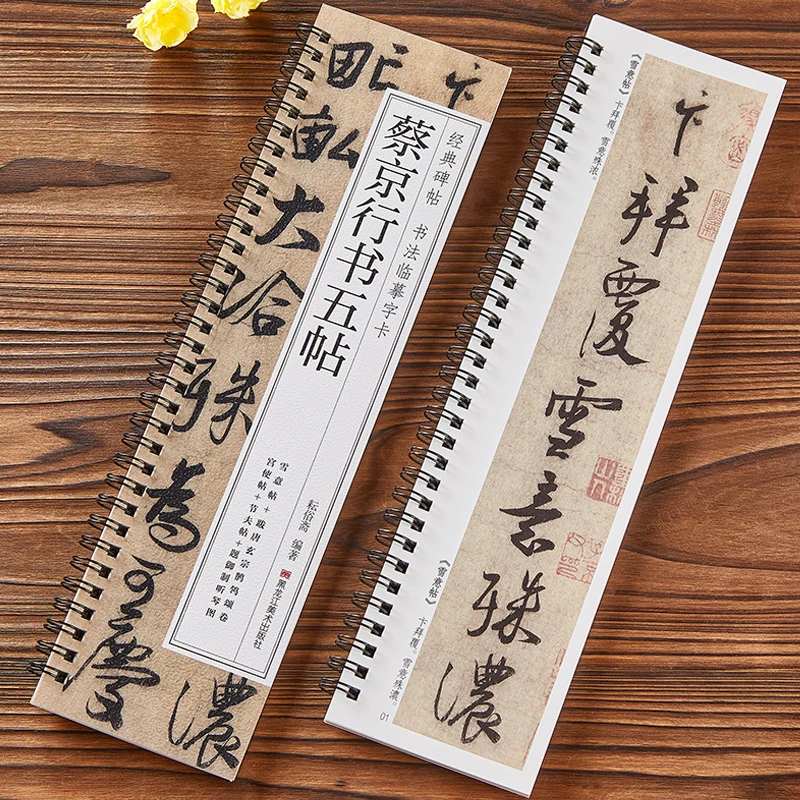 经典碑帖 书法临摹字卡
蔡京行书五帖
雪意帖+跋唐玄宗鹡鸰颂卷
宫使帖+节夫帖+题御制听琴图
耘俗斋 编著
黑龙江美术出版社
卞
濃
畝大洽殊為可慶
卞拜覆雪意殊濃
《雪意帖》 卞拜覆。雪意殊浓。
《雪意帖》 卞拜覆。雪意殊濃。
01